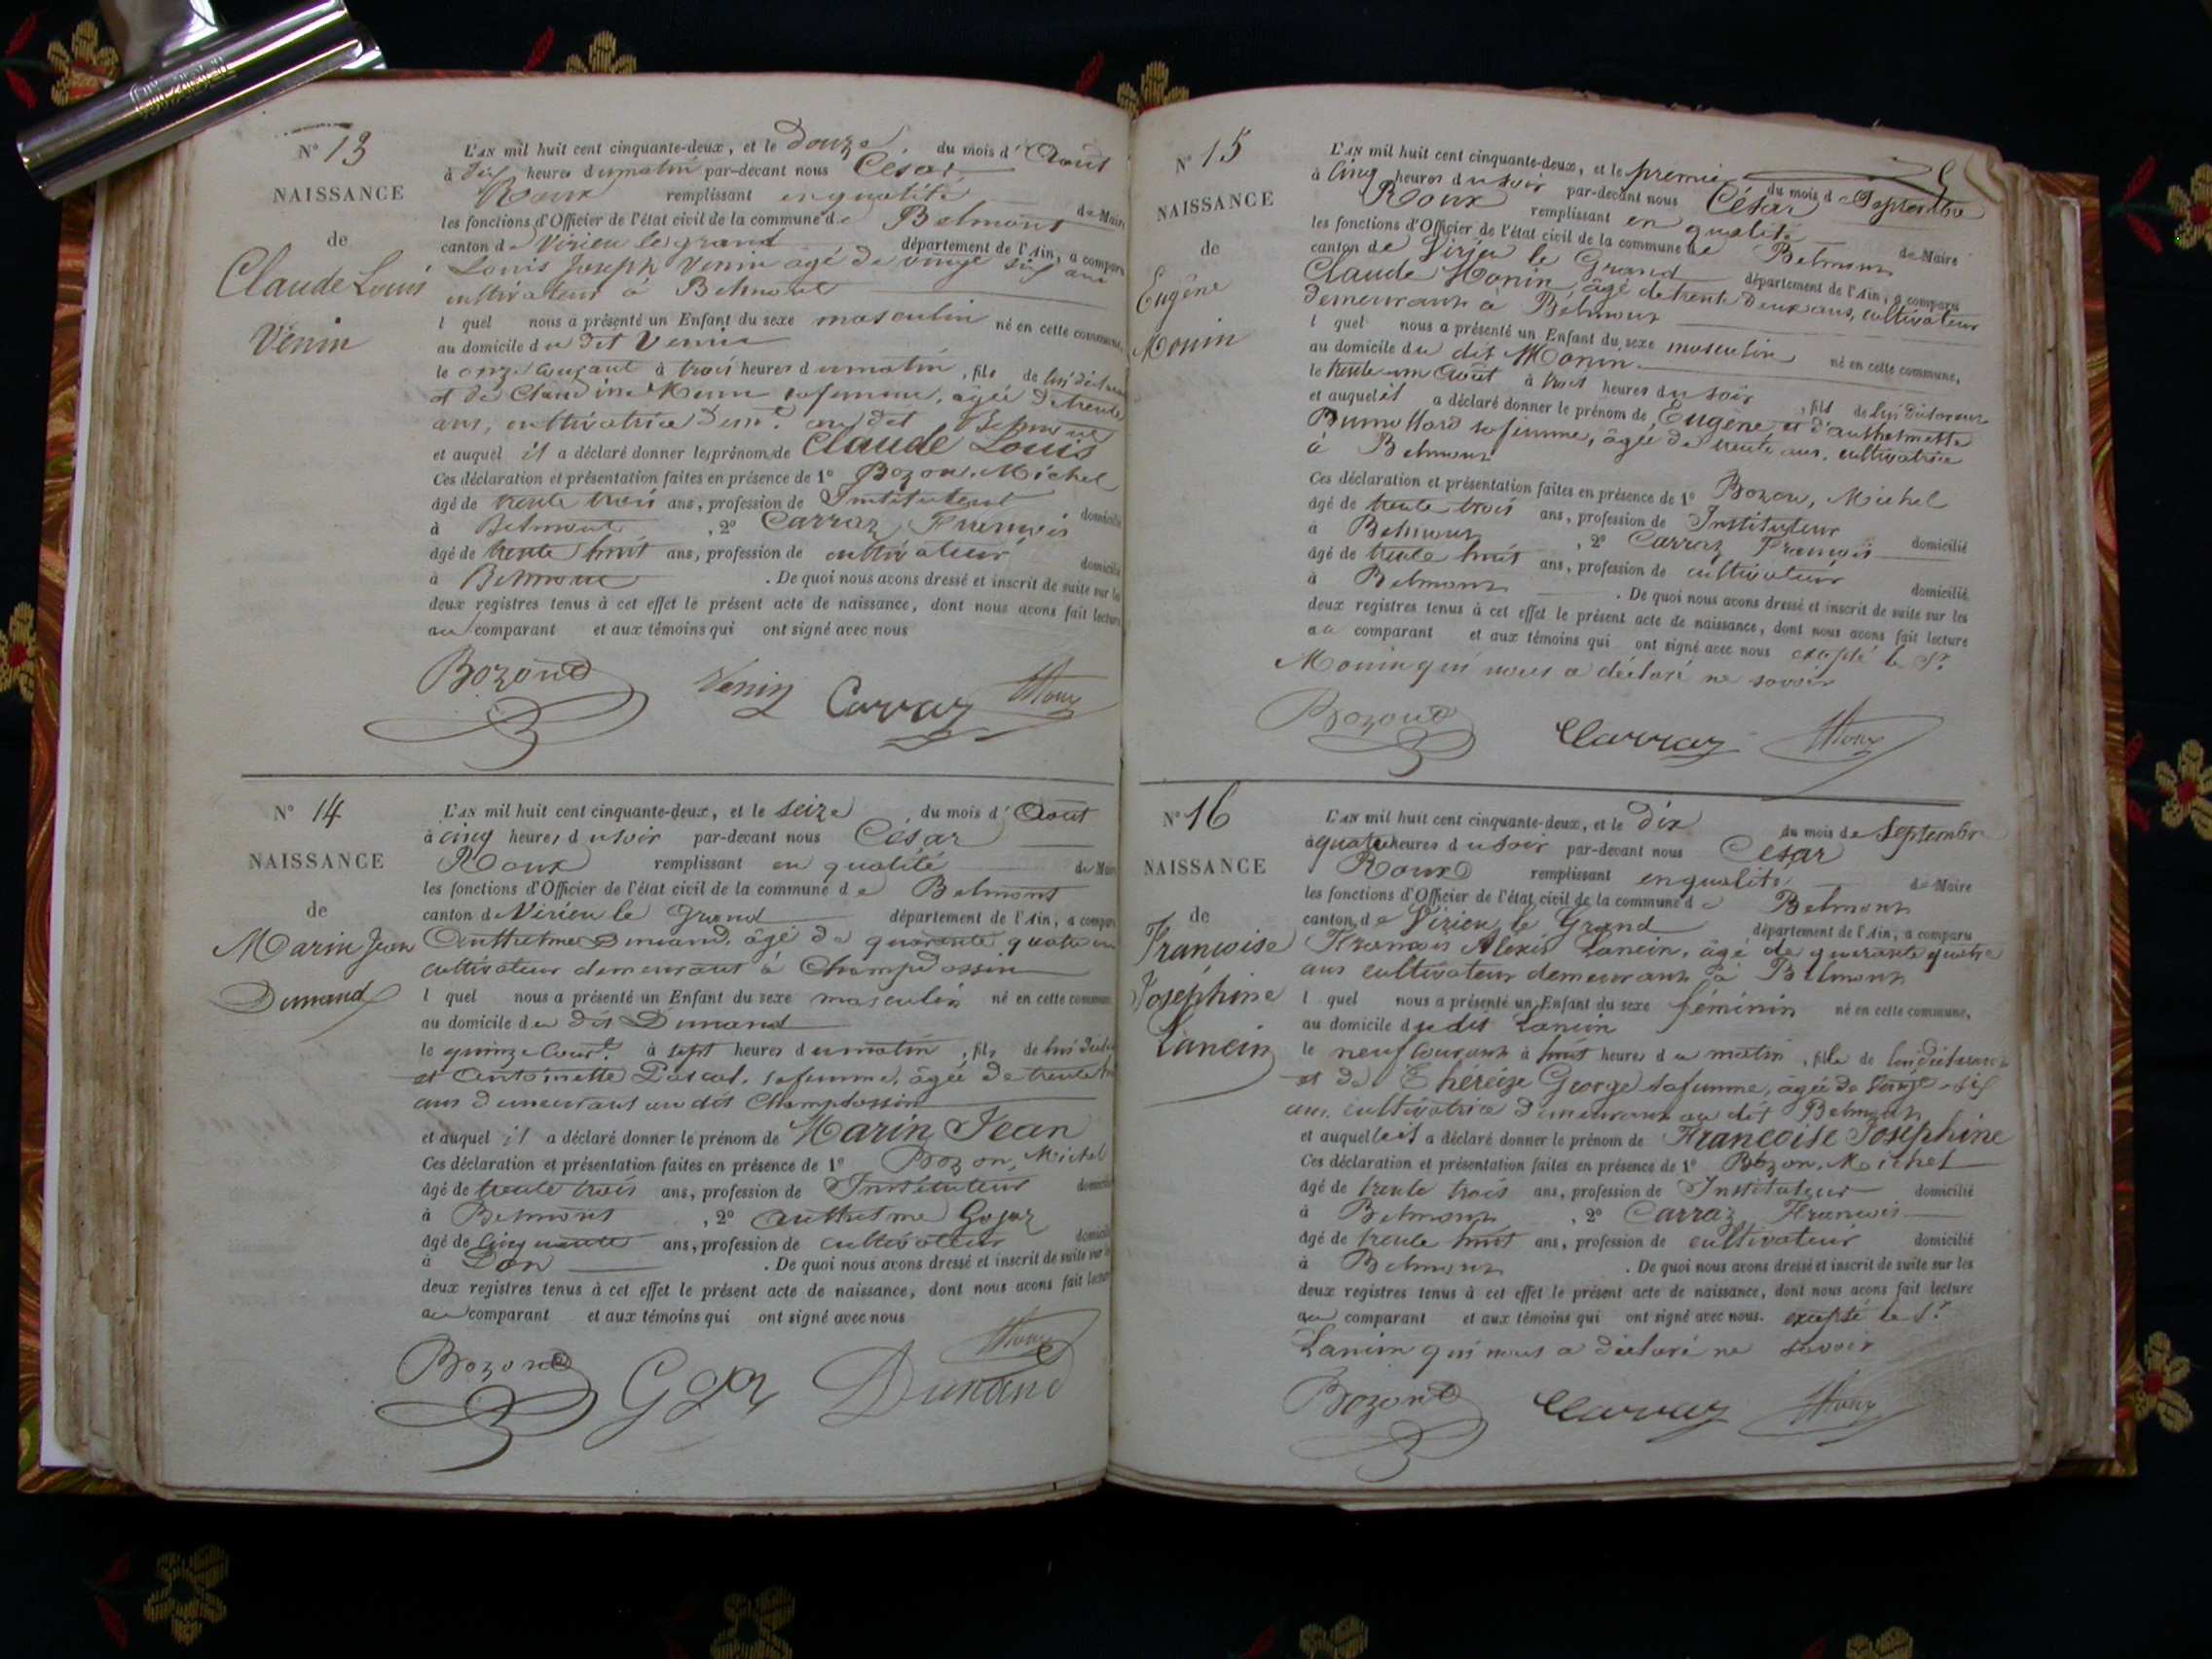 N° 13
NAISSANCE
de
Claude Louis
Venin
L'AN mil huit cent cinquante-deux, et le douze du mois d'Août
à dix heures du matin par-devant nous César
Roux remplissant en qualité de Maire
les fonctions d'Officier de l'état civil de la commune de Belmont
canton de Virieu le grand département de l'Ain, a comparu
Louis Joseph Venin agé de vingt six ans
cultivateur à Belmont
l quel nous a présenté un Enfant du sexe masculin né en cette commune,
au domicile du dit Venin
le onze courant à trois heures du matin, fils de lui déclarant
et de Claudine sa femme, âgée de trente
ans, cultivatrice demt. au dit Belmont
et auquel il a déclaré donner les prénoms de Claude Louis
Ces déclaration et présentation faites en présence de 1° Bozon, Michel
âgé de trente trois ans, profession de Instituteur domicilié
à Belmont, 2° Carraz François
âgé de trente huit ans, profession de cultivateur domicilié
à Belmont. De quoi nous avons dressé et inscrit de suite sur les
deux registres tenus à cet effet le présent acte de naissance, dont nous avons fait lecture
au comparant et aux témoins qui ont signé avec nous
Bozond Venin Carraz Roux
N° 14
NAISSANCE
de
Marin Jean
Dunand
L'AN mil huit cent cinquante-deux, et le seize du mois d'Août
à cinq heures du soir par-devant nous César
Roux remplissant en qualité de Maire
les fonctions d'Officier de l'état civil de la commune de Belmont
canton de Virieu le Grand département de l'Ain, a comparu
Anthelme Dunand, âgé de quarante quatre ans
cultivateur demeurant à Champdossin
l quel nous a présenté un Enfant du sexe masculin né en cette commune
au domicile du dit Dunand
le quinze Court. à sept heures du matin, fils de lui déclarant
et Antoinette Pascal, sa femme, âgée de trente
ans demeurant au dit Champdossin
et auquel il a déclaré donner le prénom de Marin Jean
Ces déclaration et présentation faites en présence de 1° Bozon, Michel
âgé de trente trois ans, profession de Instituteur domicilié
à Belmont, 2° Anthelme Gojoz
âgé de cinquante ans, profession de cultivateur domicilié
à Don. De quoi nous avons dressé et inscrit de suite sur les
deux registres tenus à cet effet le présent acte de naissance, dont nous avons fait lecture
au comparant et aux témoins qui ont signé avec nous
Roux
Bozond Dunand
N° 15
NAISSANCE
de
Eugène
Monin
L'AN mil huit cent cinquante-deux, et le premier du mois de Septembre
à cinq heures du soir par-devant nous César
Roux remplissant en qualité de Maire
les fonctions d'Officier de l'état civil de la commune de Belmont
canton de Virieu le Grand département de l'Ain, a comparu
Claude Monin, âgé de trente deux ans, cultivateur
demeurant à Belmont
l quel nous a présenté un Enfant du sexe masculin né en cette commune,
au domicile du dit Monin
le trente un Août à trois heures du soir, fils de lui déclarant
et auquel il a déclaré donner le prénom de Eugène et d'anthelmette
Dumollard sa femme, âgée de trente ans, cultivatrice
à Belmont
Ces déclaration et présentation faites en présence de 1° Bozon, Michel
âgé de trente trois ans, profession de Instituteur domicilié
à Belmont, 2° Carraz François
âgé de trente huit ans, profession de cultivateur domicilié
à Belmont. De quoi nous avons dressé et inscrit de suite sur les
deux registres tenus à cet effet le présent acte de naissance, dont nous avons fait lecture
au comparant et aux témoins qui ont signé avec nous excepté le Sr.
Monin qui nous a déclaré ne savoir
Bozond Carraz Roux
N° 16
NAISSANCE
de
Françoise
Joséphine
Lancin
L'AN mil huit cent cinquante-deux, et le dix du mois de Septembre
à quatre heures du soir par-devant nous César
Roux remplissant en qualité de Maire
les fonctions d'Officier de l'état civil de la commune de Belmont
canton de Virieu le Grand département de l'Ain, a comparu
François Alexis Lancin, âgé de quarante quatre
ans cultivateur demeurant à Belmont
l quel nous a présenté un Enfant du sexe féminin né en cette commune,
au domicile du dit Lancin
le neuf courant à huit heures du matin, fille de lui déclarant
et de Thérèze George sa femme, âgée de vingt six
ans, cultivatrice demeurant au dit Belmont
et auquel il a déclaré donner le prénom de Françoise Joséphine
Ces déclaration et présentation faites en présence de 1° Bozon, Michel
âgé de trente trois ans, profession de Instituteur domicilié
à Belmont, 2° Carraz François
âgé de trente huit ans, profession de cultivateur domicilié
à Belmont. De quoi nous avons dressé et inscrit de suite sur les
deux registres tenus à cet effet le présent acte de naissance, dont nous avons fait lecture
au comparant et aux témoins qui ont signé avec nous. excepté le Sr.
Lancin qui nous a déclaré ne savoir
Bozond Carraz Roux